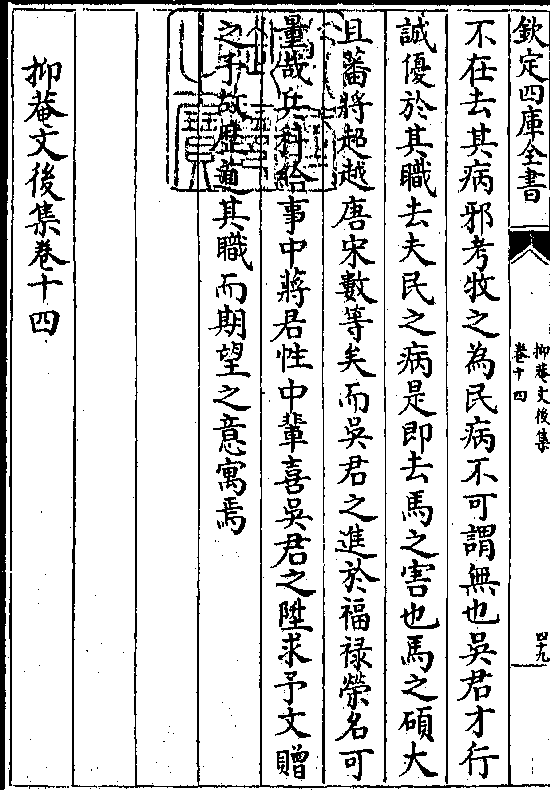 欽定四庫全書
抑菴文後集
卷十四
四十九
不在去其病邪考牧之為民病不可謂無也吳君才行
誠優於其職去夫民之病是即去馬之害也馬之碩大
且蕃將超越唐宋數等矣而吳君之進於福祿榮名可
量哉兵科給事中蔣君性中輩喜吳君之陞求予文贈
之予故歷道其職而期望之意寓焉
抑菴文後集卷十四